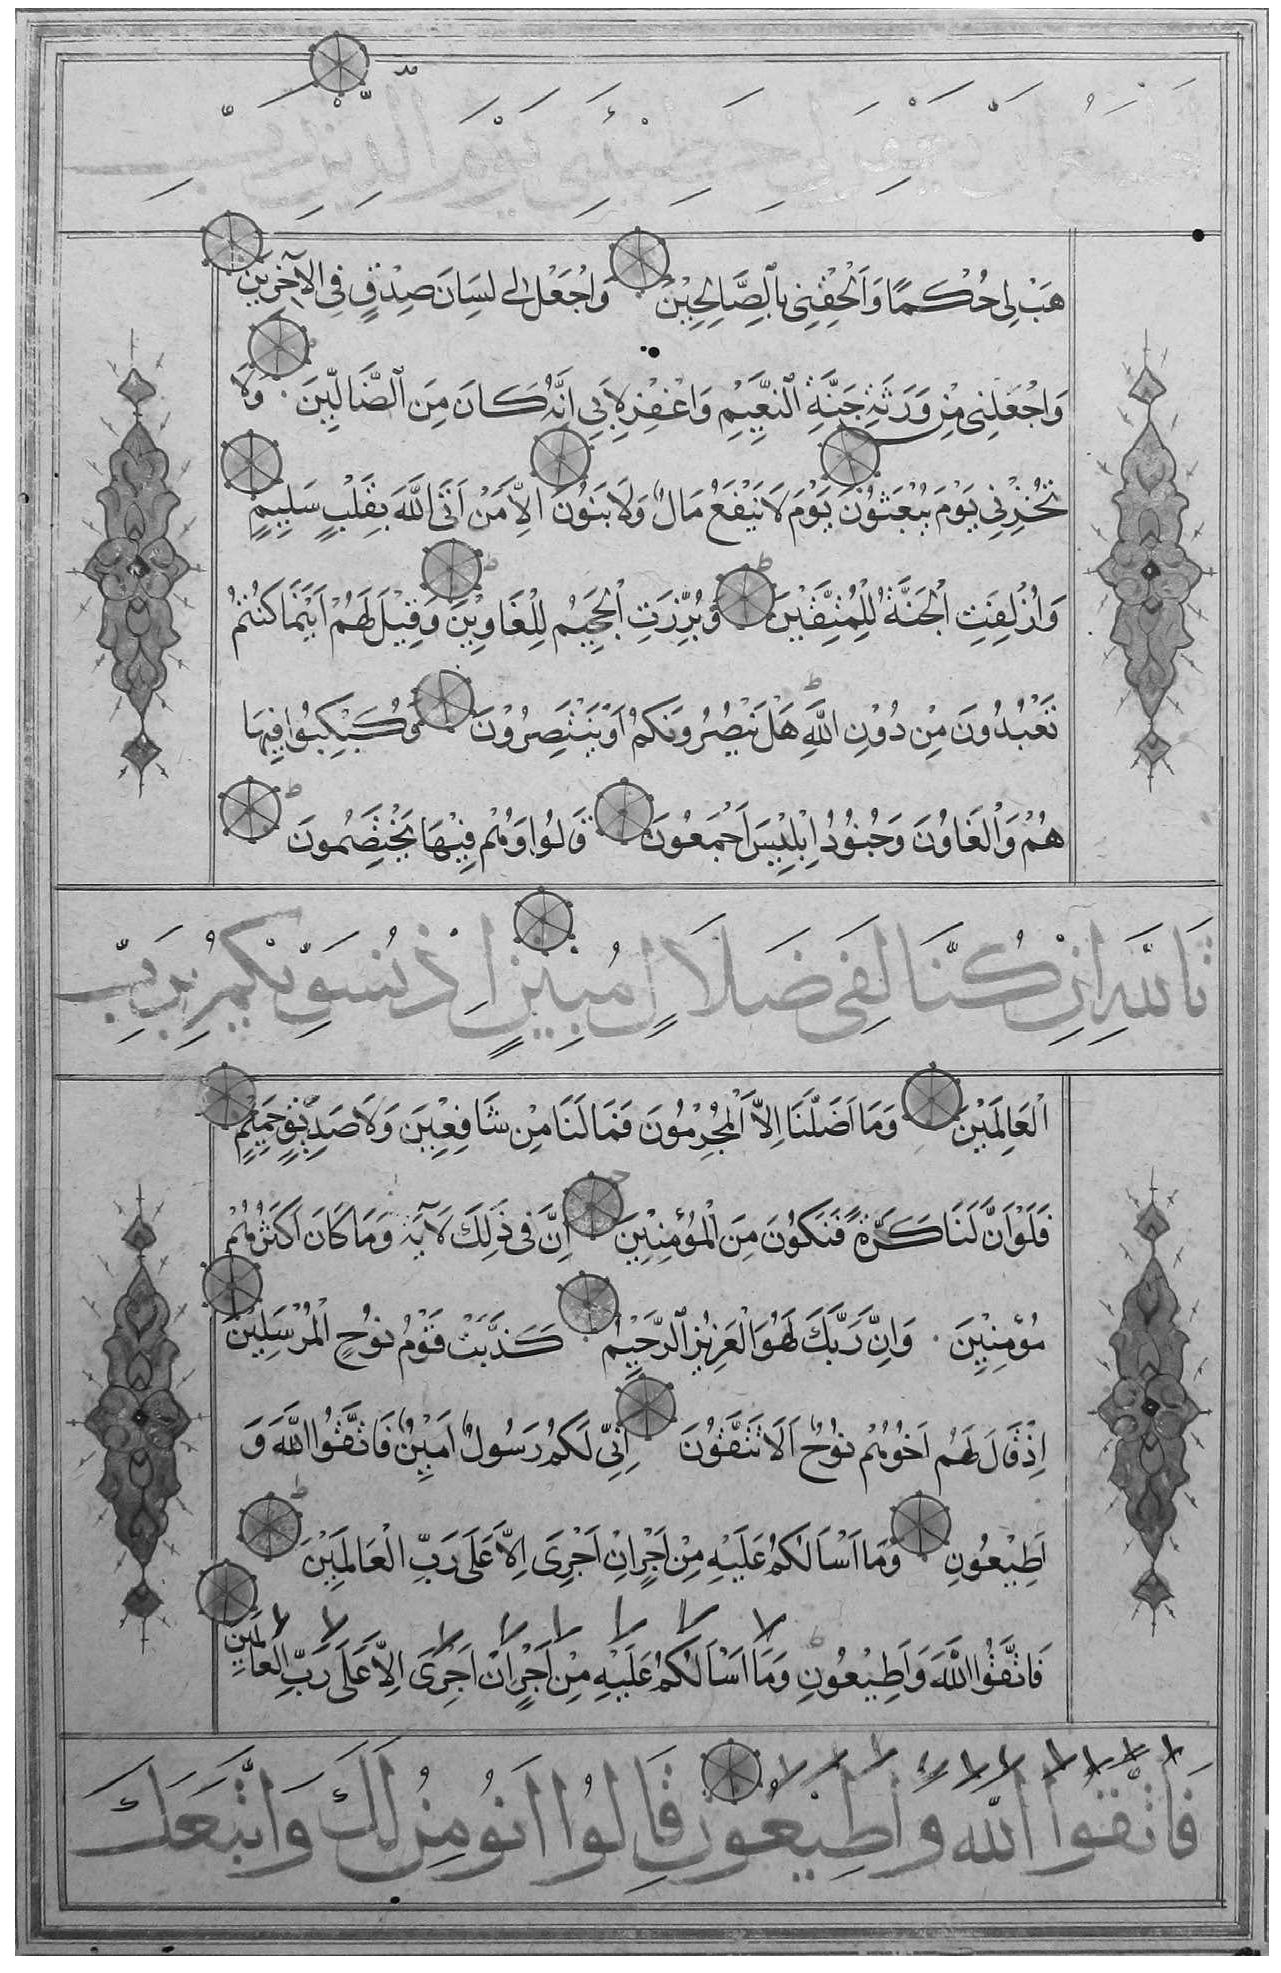 اَطْمَعُ اَنْ يَغْفِرَ لِى خَطِيئَتِى يَوْمَ الدِّينِ رَبِّ
هَبْ لِى حُكْمًا وَاَلْحِقْنِى بِالصَّالِحِيْنَ وَاجْعَلْ لِى لِسَانَ صِدْقٍ فِى الْآخِرِيْنَ
وَاجْعَلْنِى مِنْ وَرَثَةِ جَنَّةِ النَّعِيْمِ وَاغْفِرْ لِاَبِى اِنَّهُ كَانَ مِنَ الضَّالِّيْنَ وَلَا
تُخْزِنِى يَوْمَ يُبْعَثُوْنَ يَوْمَ لَا يَنْفَعُ مَالٌ وَلَا بَنُوْنَ اِلَّا مَنْ اَتَى اللَّهَ بِقَلْبٍ سَلِيْمٍ
وَاُزْلِفَتِ الْجَنَّةُ لِلْمُتَّقِيْنَ وَبُرِّزَتِ الْجَحِيْمُ لِلْغَاوِيْنَ وَقِيْلَ لَهُمْ اَيْنَمَا كُنْتُمْ
تَعْبُدُوْنَ مِنْ دُوْنِ اللَّهِ هَلْ يَنْصُرُوْنَكُمْ اَوْ يَنْتَصِرُوْنَ فَكُبْكِبُوا فِيْهَا
هُمْ وَالْغَاوُنَ وَجُنُوْدُ اِبْلِيْسَ اَجْمَعُوْنَ قَالُوا وَهُمْ فِيْهَا يَخْتَصِمُوْنَ
تَاللَّهِ اِنْ كُنَّا لَفِى ضَلَالٍ مُبِيْنٍ اِذْ نُسَوِّيْكُمْ بِرَبِّ
الْعَالَمِيْنَ وَمَا اَضَلَّنَا اِلَّا الْمُجْرِمُوْنَ فَمَا لَنَا مِنْ شَافِعِيْنَ وَلَا صَدِيْقٍ حَمِيْمٍ
فَلَوْ اَنَّ لَنَا كَرَّةً فَنَكُوْنَ مِنَ الْمُؤْمِنِيْنَ اِنَّ فِى ذَلِكَ لَآيَةً وَمَا كَانَ اَكْثَرُهُمْ
مُؤْمِنِيْنَ وَاِنَّ رَبَّكَ لَهُوَ الْعَزِيْزُ الرَّحِيْمُ كَذَّبَتْ قَوْمُ نُوْحٍ الْمُرْسَلِيْنَ
اِذْ قَالَ لَهُمْ اَخُوْهُمْ نُوْحٌ اَلَا تَتَّقُوْنَ اِنِّى لَكُمْ رَسُوْلٌ اَمِيْنٌ فَاتَّقُوا اللَّهَ وَ
اَطِيْعُوْنِ وَمَا اَسْاَلُكُمْ عَلَيْهِ مِنْ اَجْرٍ اِنْ اَجْرِىَ اِلَّا عَلَى رَبِّ الْعَالَمِيْنَ
فَاتَّقُوا اللَّهَ وَاَطِيْعُوْنِ وَمَا اَسْاَلُكُمْ عَلَيْهِ مِنْ اَجْرٍ اِنْ اَجْرِىَ اِلَّا عَلَى رَبِّ الْعَالَمِيْنَ
فَاتَّقُوا اللَّهَ وَاَطِيْعُوْنِ قَالُوا اَنُؤْمِنُ لَكَ وَاتَّبَعَكَ